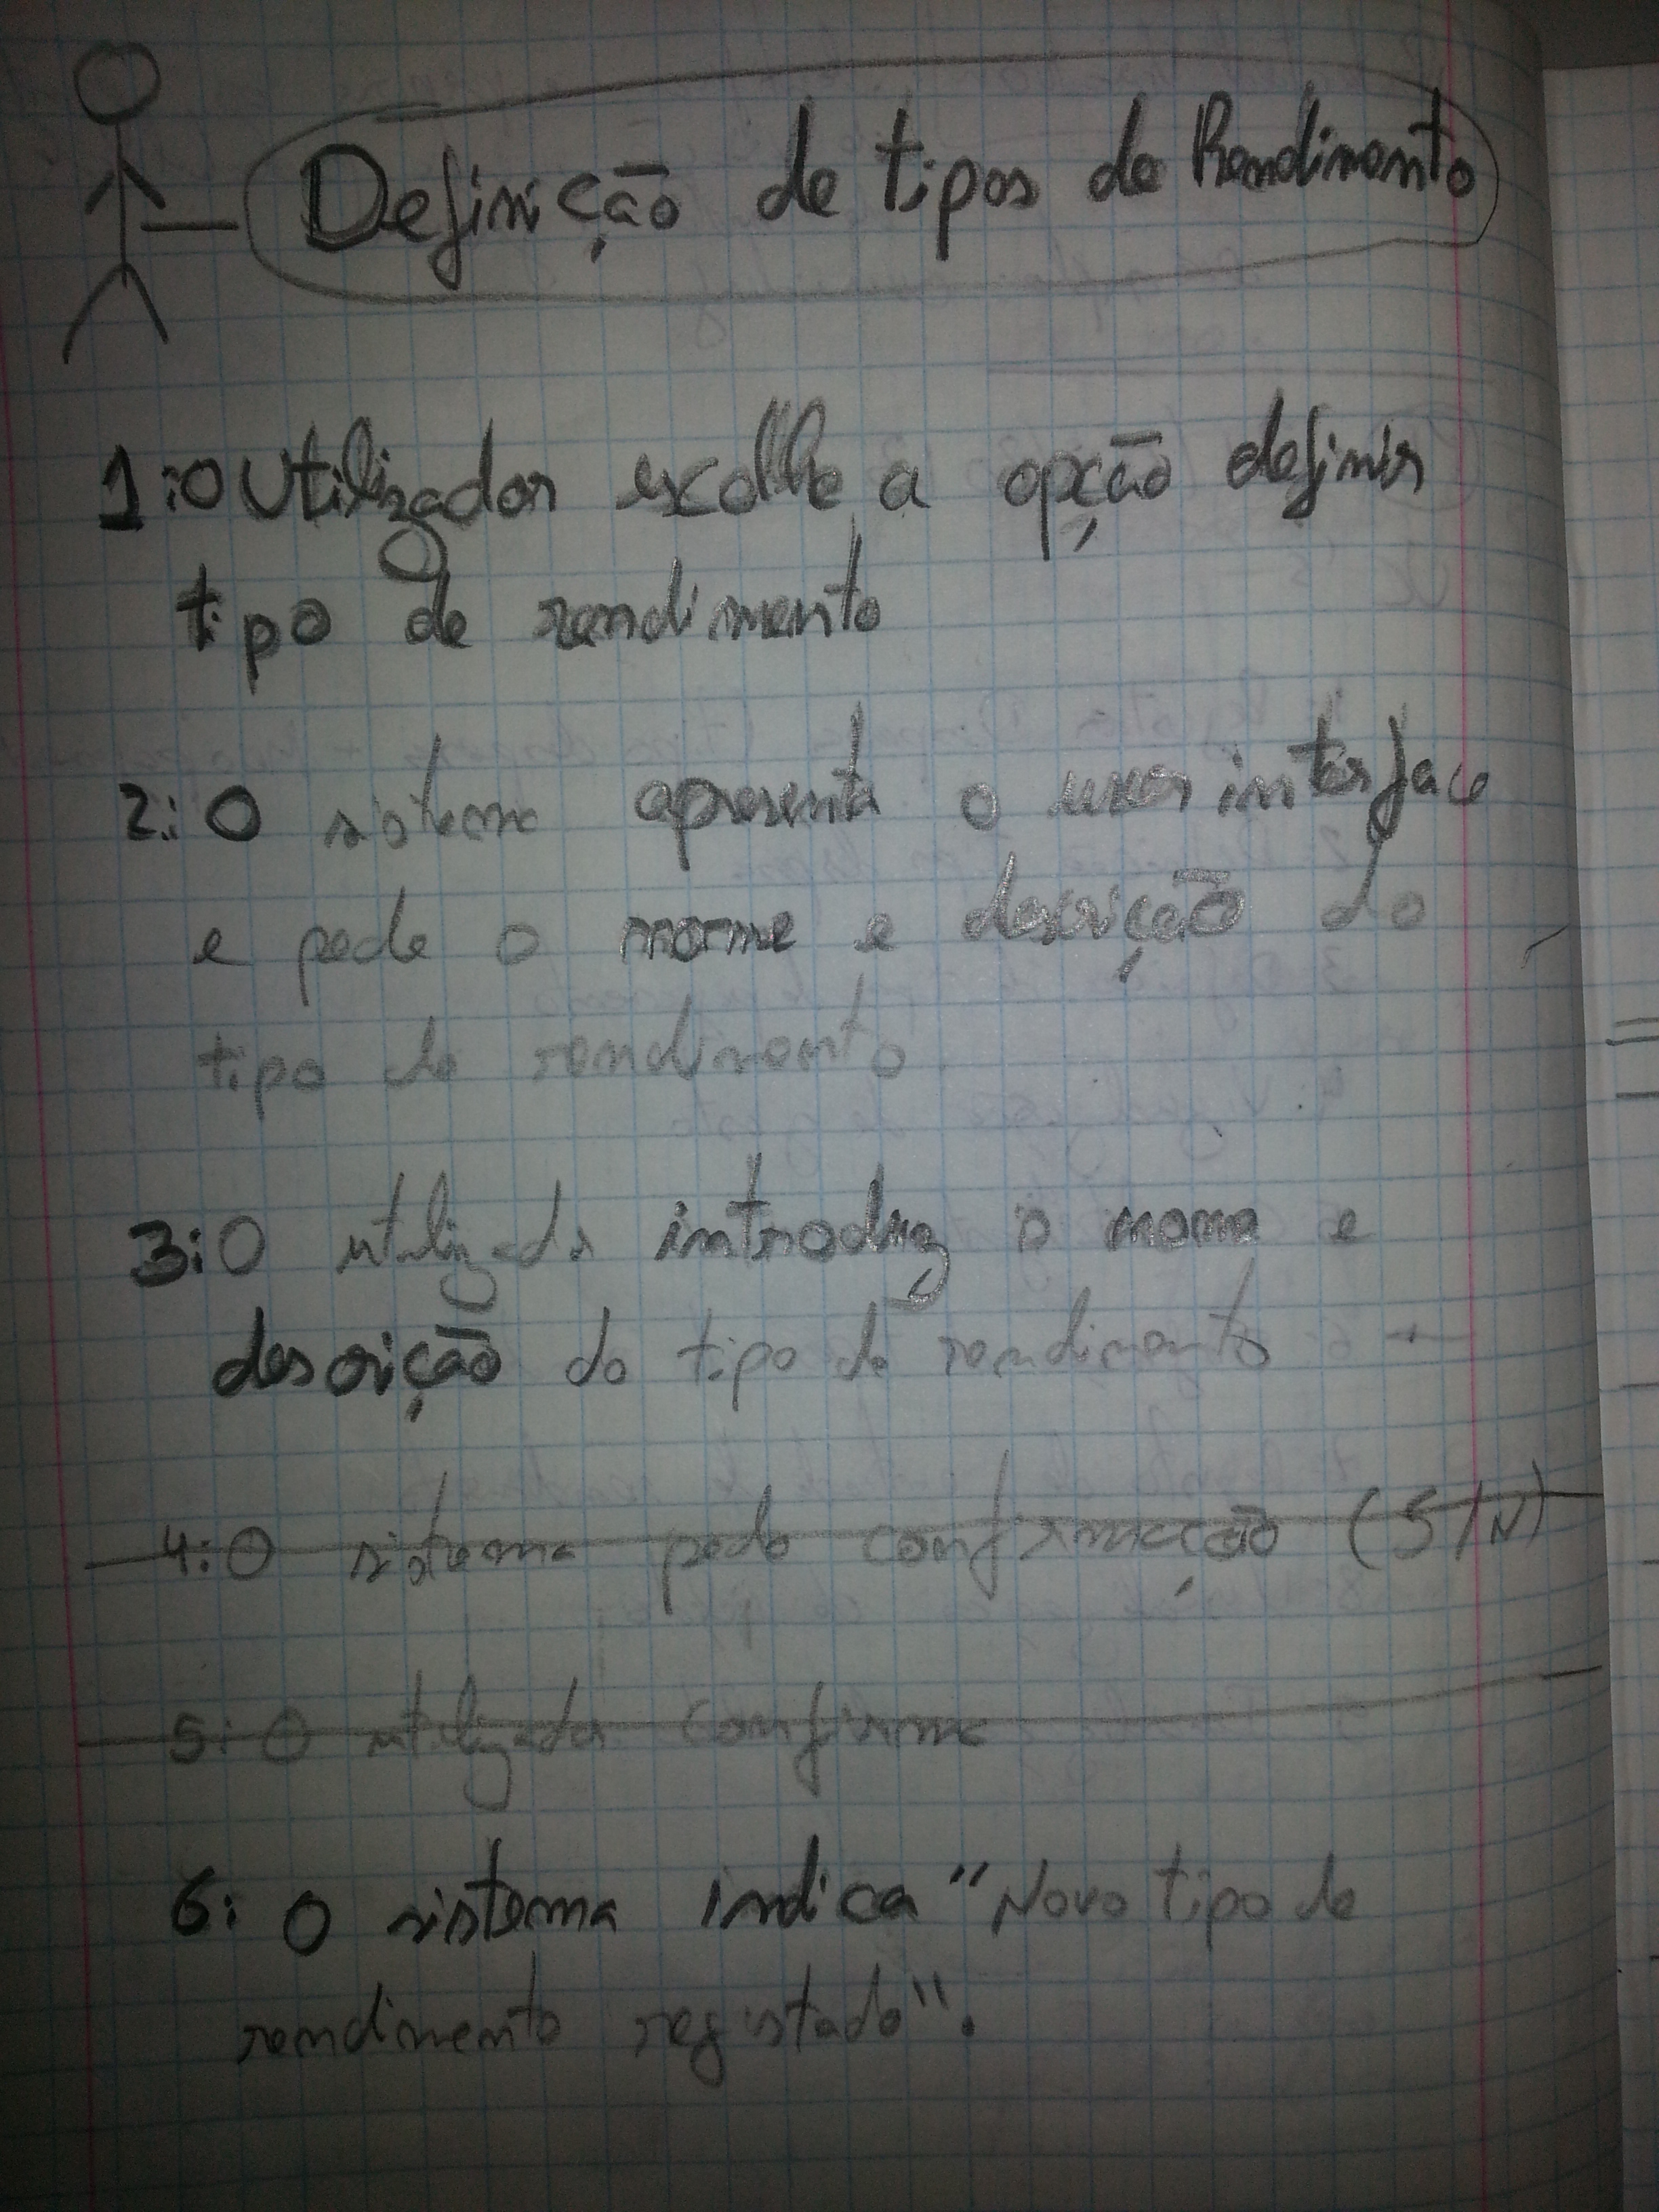 Definição de tipos de Rendimento
1: O Utilizador escolhe a opção definir
tipo de rendimento
2: O sistema apresenta o user interface
e pede o nome e descrição do
tipo de rendimento
3: O utilizador introduz o nome e
descrição do tipo de rendimento
4: O sistema pede confirmação (S/N)
5: O utilizador confirma
6: O sistema indica "Novo tipo de
rendimento registado".